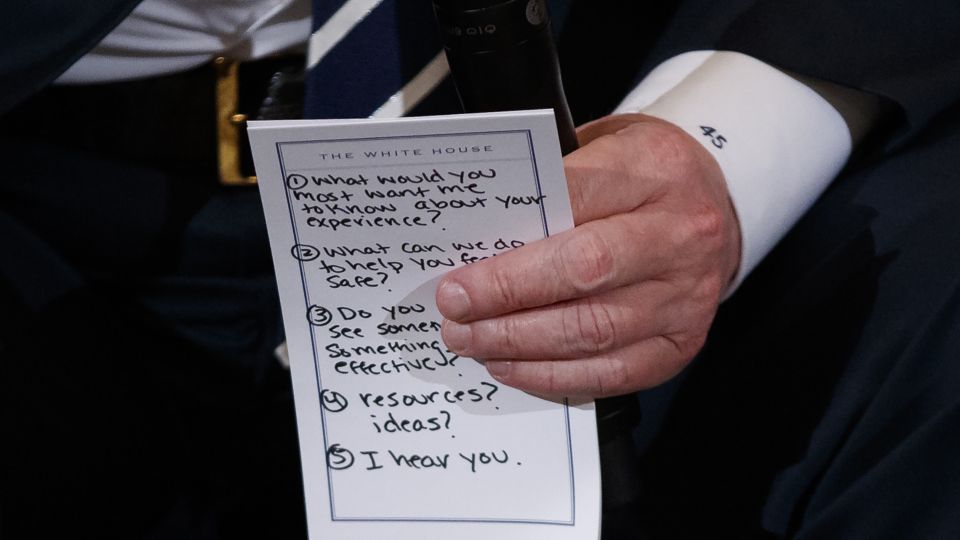 45
THE WHITE HOUSE
① What would you
most want me
to know about your
experience?
② What can we do
to help you
safe?
③ Do you
see
effective?
④ resources?
ideas?
⑤ I hear you.